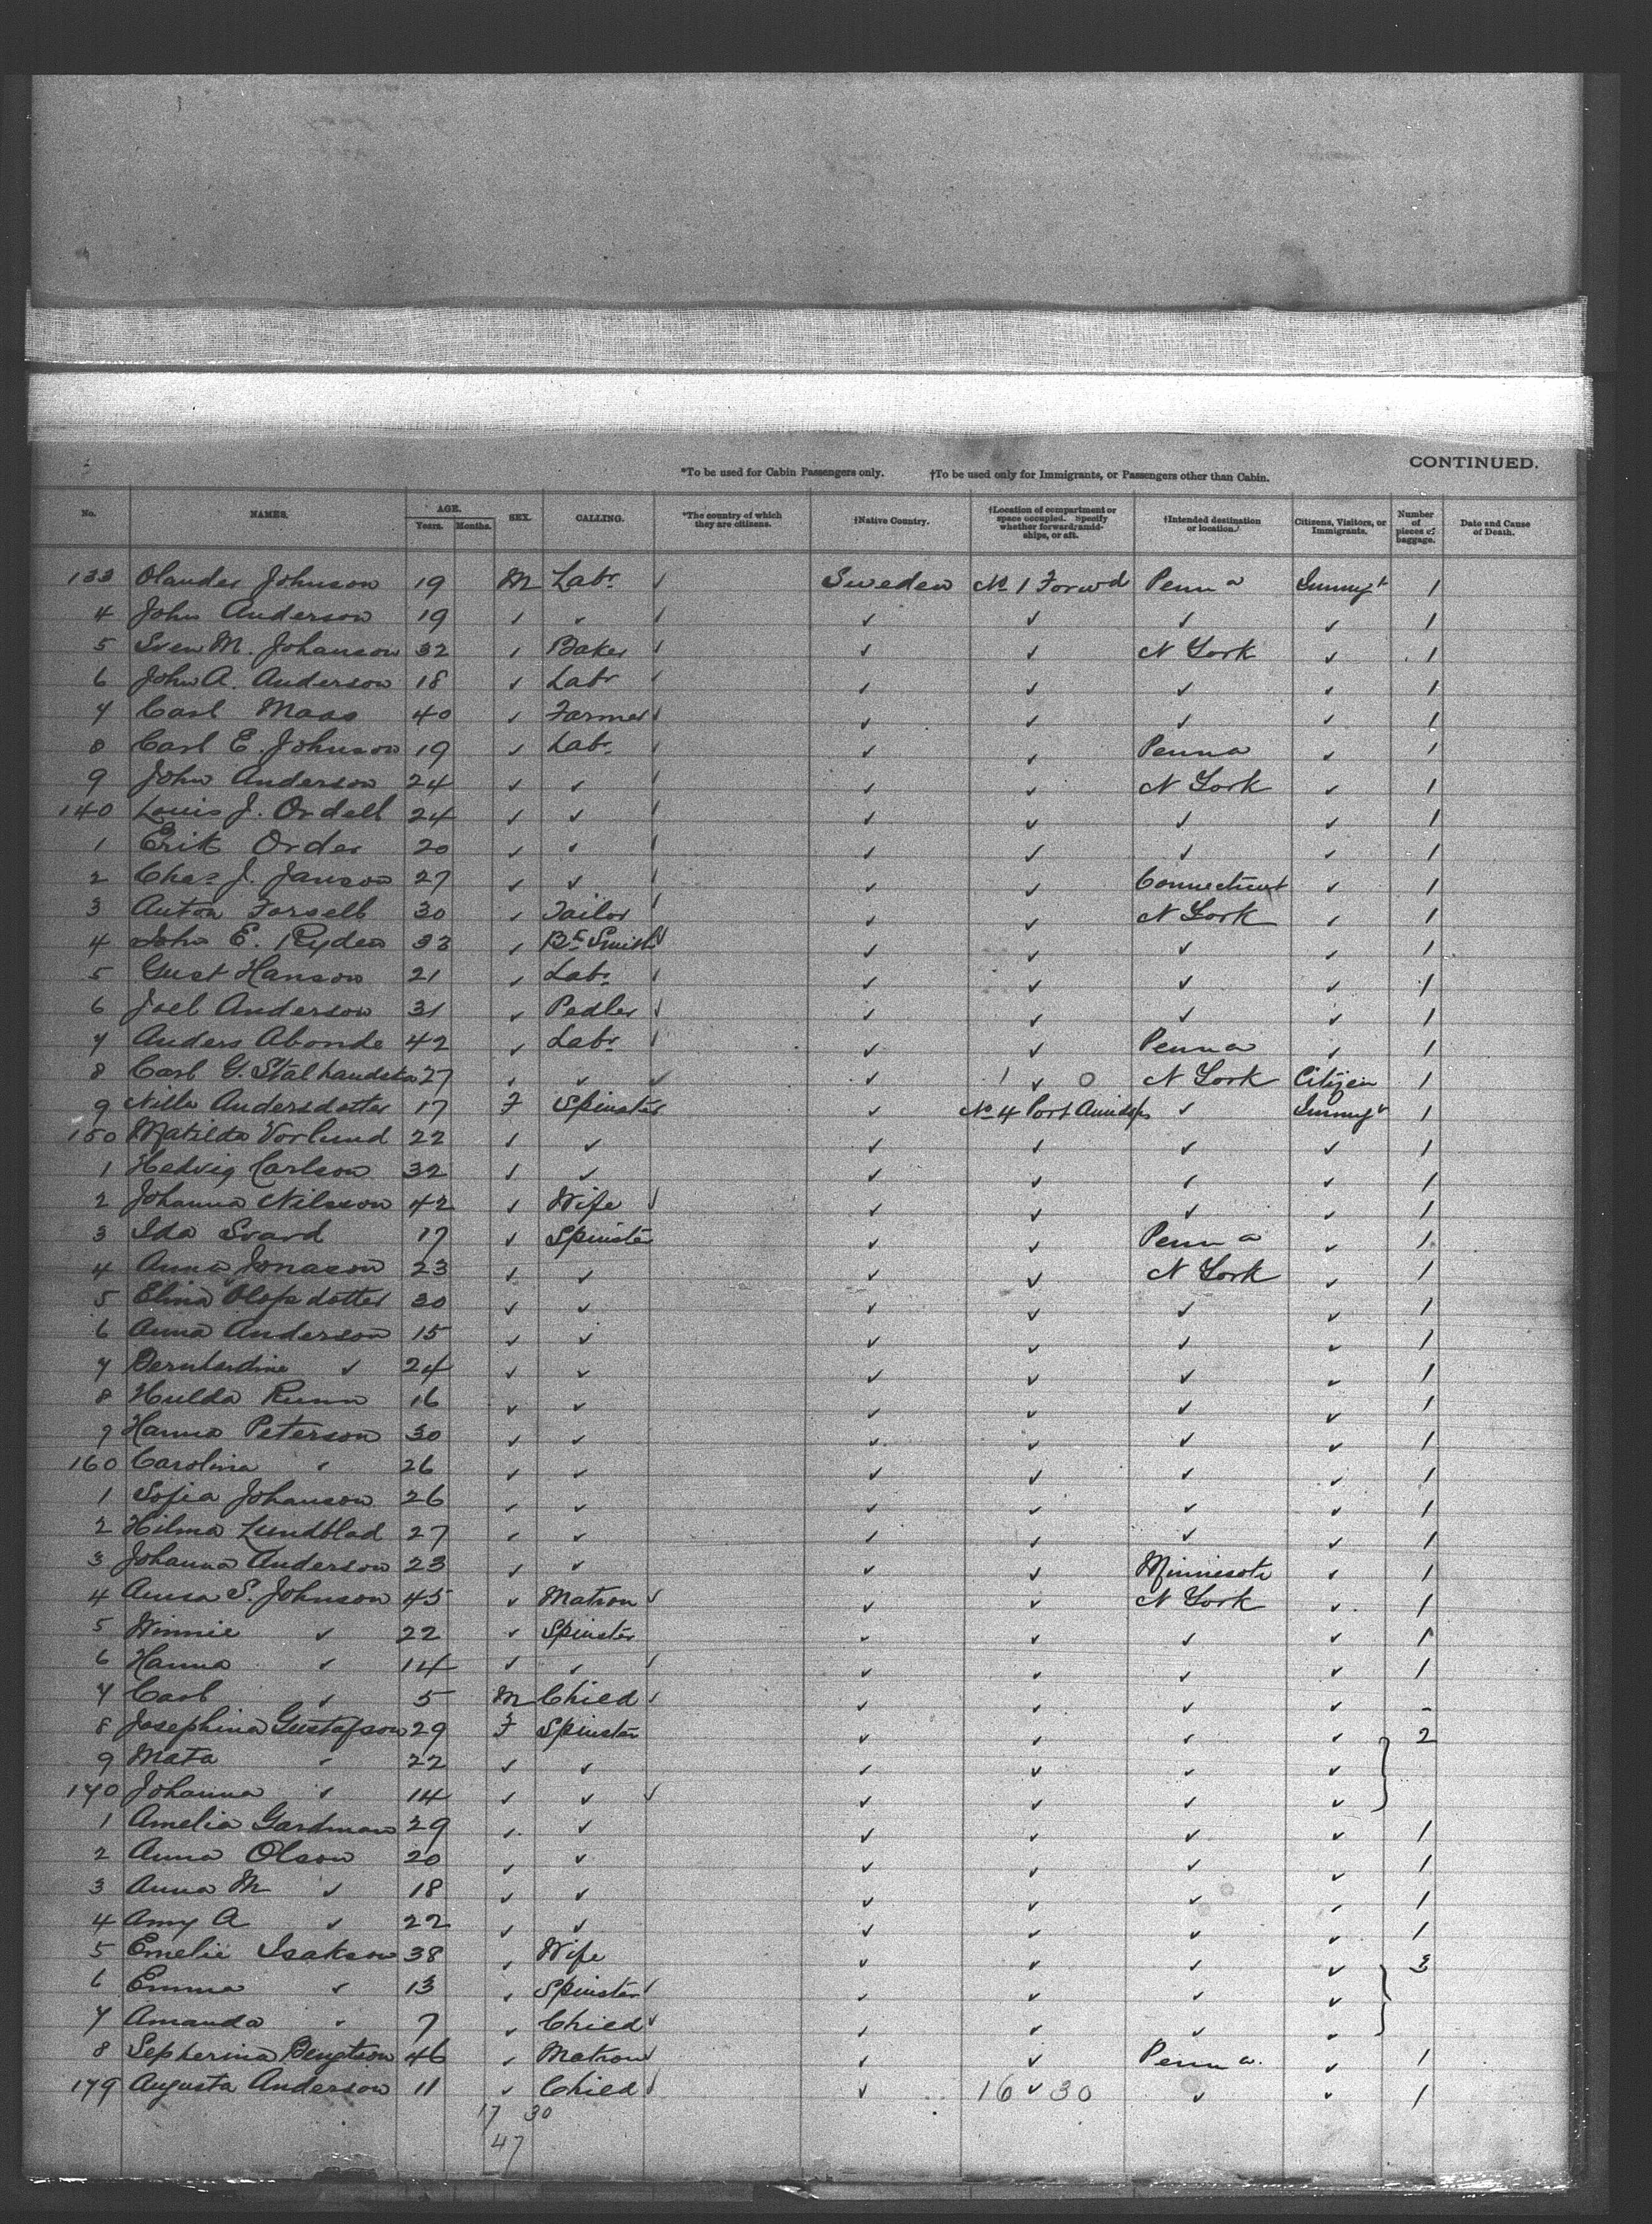 CONTINUED.
*To be used for Cabin Passengers only. †To be used only for Immigrants, or Passengers other than Cabin.
No. NAMES. AGE. Years. Months. SEX. CALLING. *The country of which they are citizens. †Native Country. †Location of compartment or space occupied. Specify whether forward, amidships, or aft. †Intended destination or location. Citizens, Visitors, or Immigrants. Number of pieces of baggage. Date and Cause of Death.
133 Olander Johnson 19 M Labr. ✓ Sweden No 1 Forwd Penna Immigt 1
4 John Anderson 19 ✓ ✓ ✓ ✓ ✓ ✓ ✓ 1
5 Sven M. Johanson 32 ✓ Baker ✓ ✓ ✓ N York ✓ 1
6 John A. Anderson 18 ✓ Labr ✓ ✓ ✓ ✓ ✓ 1
7 Carl Maas 40 ✓ Farmer ✓ ✓ ✓ ✓ ✓ 1
8 Carl E. Johnson 19 ✓ Labr. ✓ ✓ ✓ Penna ✓ 1
9 John Anderson 24 ✓ ✓ ✓ ✓ ✓ N York ✓ 1
140 Louis J. Ordell 24 ✓ ✓ ✓ ✓ ✓ ✓ ✓ 1
1 Erik Order 20 ✓ ✓ ✓ ✓ ✓ ✓ ✓ 1
2 Chas J. Janson 27 ✓ ✓ ✓ ✓ ✓ Connecticut ✓ 1
3 Anton Forsell 30 ✓ Tailor ✓ ✓ ✓ N York ✓ 1
4 John E. Ryden 33 ✓ Bk Smith ✓ ✓ ✓ ✓ ✓ 1
5 Gust Hanson 21 ✓ Labr. ✓ ✓ ✓ ✓ ✓ 1
6 Joel Anderson 31 ✓ Pedler ✓ ✓ ✓ ✓ ✓ 1
7 Anders Abonde 42 ✓ Labr ✓ ✓ ✓ Penna ✓ 1
8 Carl G. 27 ✓ ✓ ✓ ✓ 1 ✓ 0 N York Citizen 1
9 Nilla Andersdotter 17 F Spinster ✓ No 4 Port Amidsps ✓ Immigt 1
150 Matilda Vorlund 22 ✓ ✓ ✓ ✓ ✓ ✓ 1
1 Hedvig Carlson 32 ✓ ✓ ✓ ✓ ✓ ✓ 1
2 Johanna Nilsson 42 ✓ Wife ✓ ✓ ✓ ✓ ✓ 1
3 Ida Svard 17 ✓ Spinster ✓ ✓ Penna ✓ 1
4 Anna Jonason 23 ✓ ✓ ✓ ✓ N York ✓ 1
5 Elina Olofsdotter 30 ✓ ✓ ✓ ✓ ✓ ✓ 1
6 Anna Anderson 15 ✓ ✓ ✓ ✓ ✓ ✓ 1
7 Bernhardine ✓ 24 ✓ ✓ ✓ ✓ ✓ ✓ 1
8 Hulda Runn 16 ✓ ✓ ✓ ✓ ✓ ✓ 1
9 Hanna Peterson 30 ✓ ✓ ✓ ✓ ✓ ✓ 1
160 Carolina ✓ 26 ✓ ✓ ✓ ✓ ✓ ✓ 1
1 Sofia Johanson 26 ✓ ✓ ✓ ✓ ✓ ✓ 1
2 Hilma Lundblad 27 ✓ ✓ ✓ ✓ ✓ ✓ 1
3 Johanna Anderson 23 ✓ ✓ ✓ ✓ Minnesota ✓ 1
4 S. Johnson 45 ✓ Matron ✓ ✓ ✓ N York ✓ 1
5 Winnie ✓ 22 ✓ Spinster ✓ ✓ ✓ ✓ 1
6 Hanna ✓ 14 ✓ ✓ ✓ ✓ ✓ ✓ ✓ 1
7 Carl ✓ 5 M Child ✓ ✓ ✓ ✓ ✓ -
8 Josephina Gustafson 29 F Spinster ✓ ✓ ✓ ✓ 2
9 Mata ✓ 22 ✓ ✓ ✓ ✓ ✓ ✓
170 Johanna ✓ 14 ✓ ✓ ✓ ✓ ✓ ✓ ✓
1 Amelia Gardman 29 ✓ ✓ ✓ ✓ ✓ ✓ 1
2 Anna Olson 20 ✓ ✓ ✓ ✓ ✓ ✓ 1
3 Anna M ✓ 18 ✓ ✓ ✓ ✓ ✓ ✓ 1
4 Amy A ✓ 22 ✓ ✓ ✓ ✓ ✓ ✓ 1
5 Emelie Isakson 38 ✓ Wife ✓ ✓ ✓ ✓ 3
6 Emma ✓ 13 ✓ Spinster ✓ ✓ ✓ ✓ ✓
7 Amanda ✓ 7 ✓ Child ✓ ✓ ✓ ✓ ✓
8 Sepherina Bengtson 46 ✓ Matron ✓ ✓ ✓ Penna. ✓ 1
179 Augusta Anderson 11 ✓ Child ✓ ✓ 16 ✓ 30 ✓ ✓ 1
17 30
47